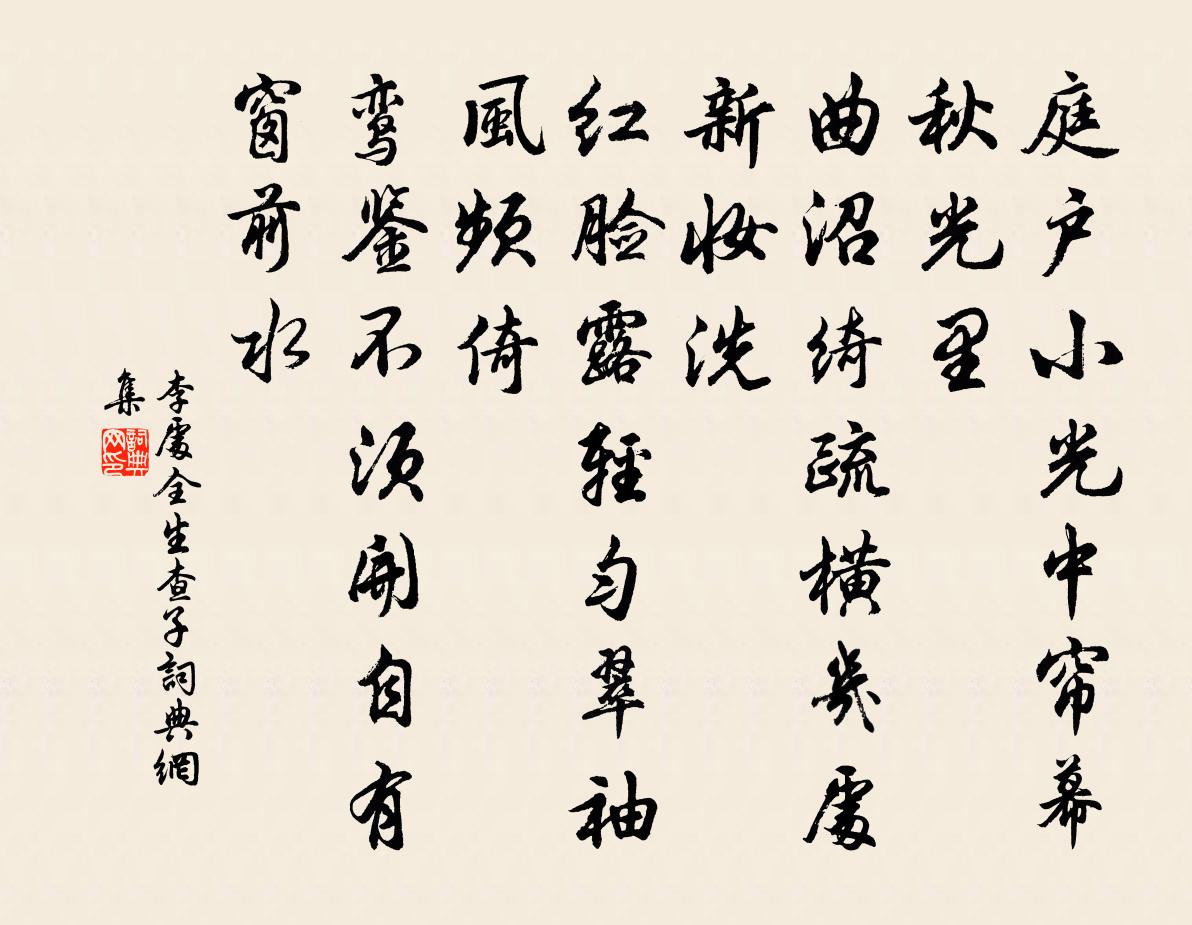 庭户小光中帘幕
秋光里
曲沼绮疏横几處
新妆洗
红脸露輕匀翠袖
風频倚
鸾鉴不须開自有
窗前水
李處全生查子詞典網
集
詞典网印